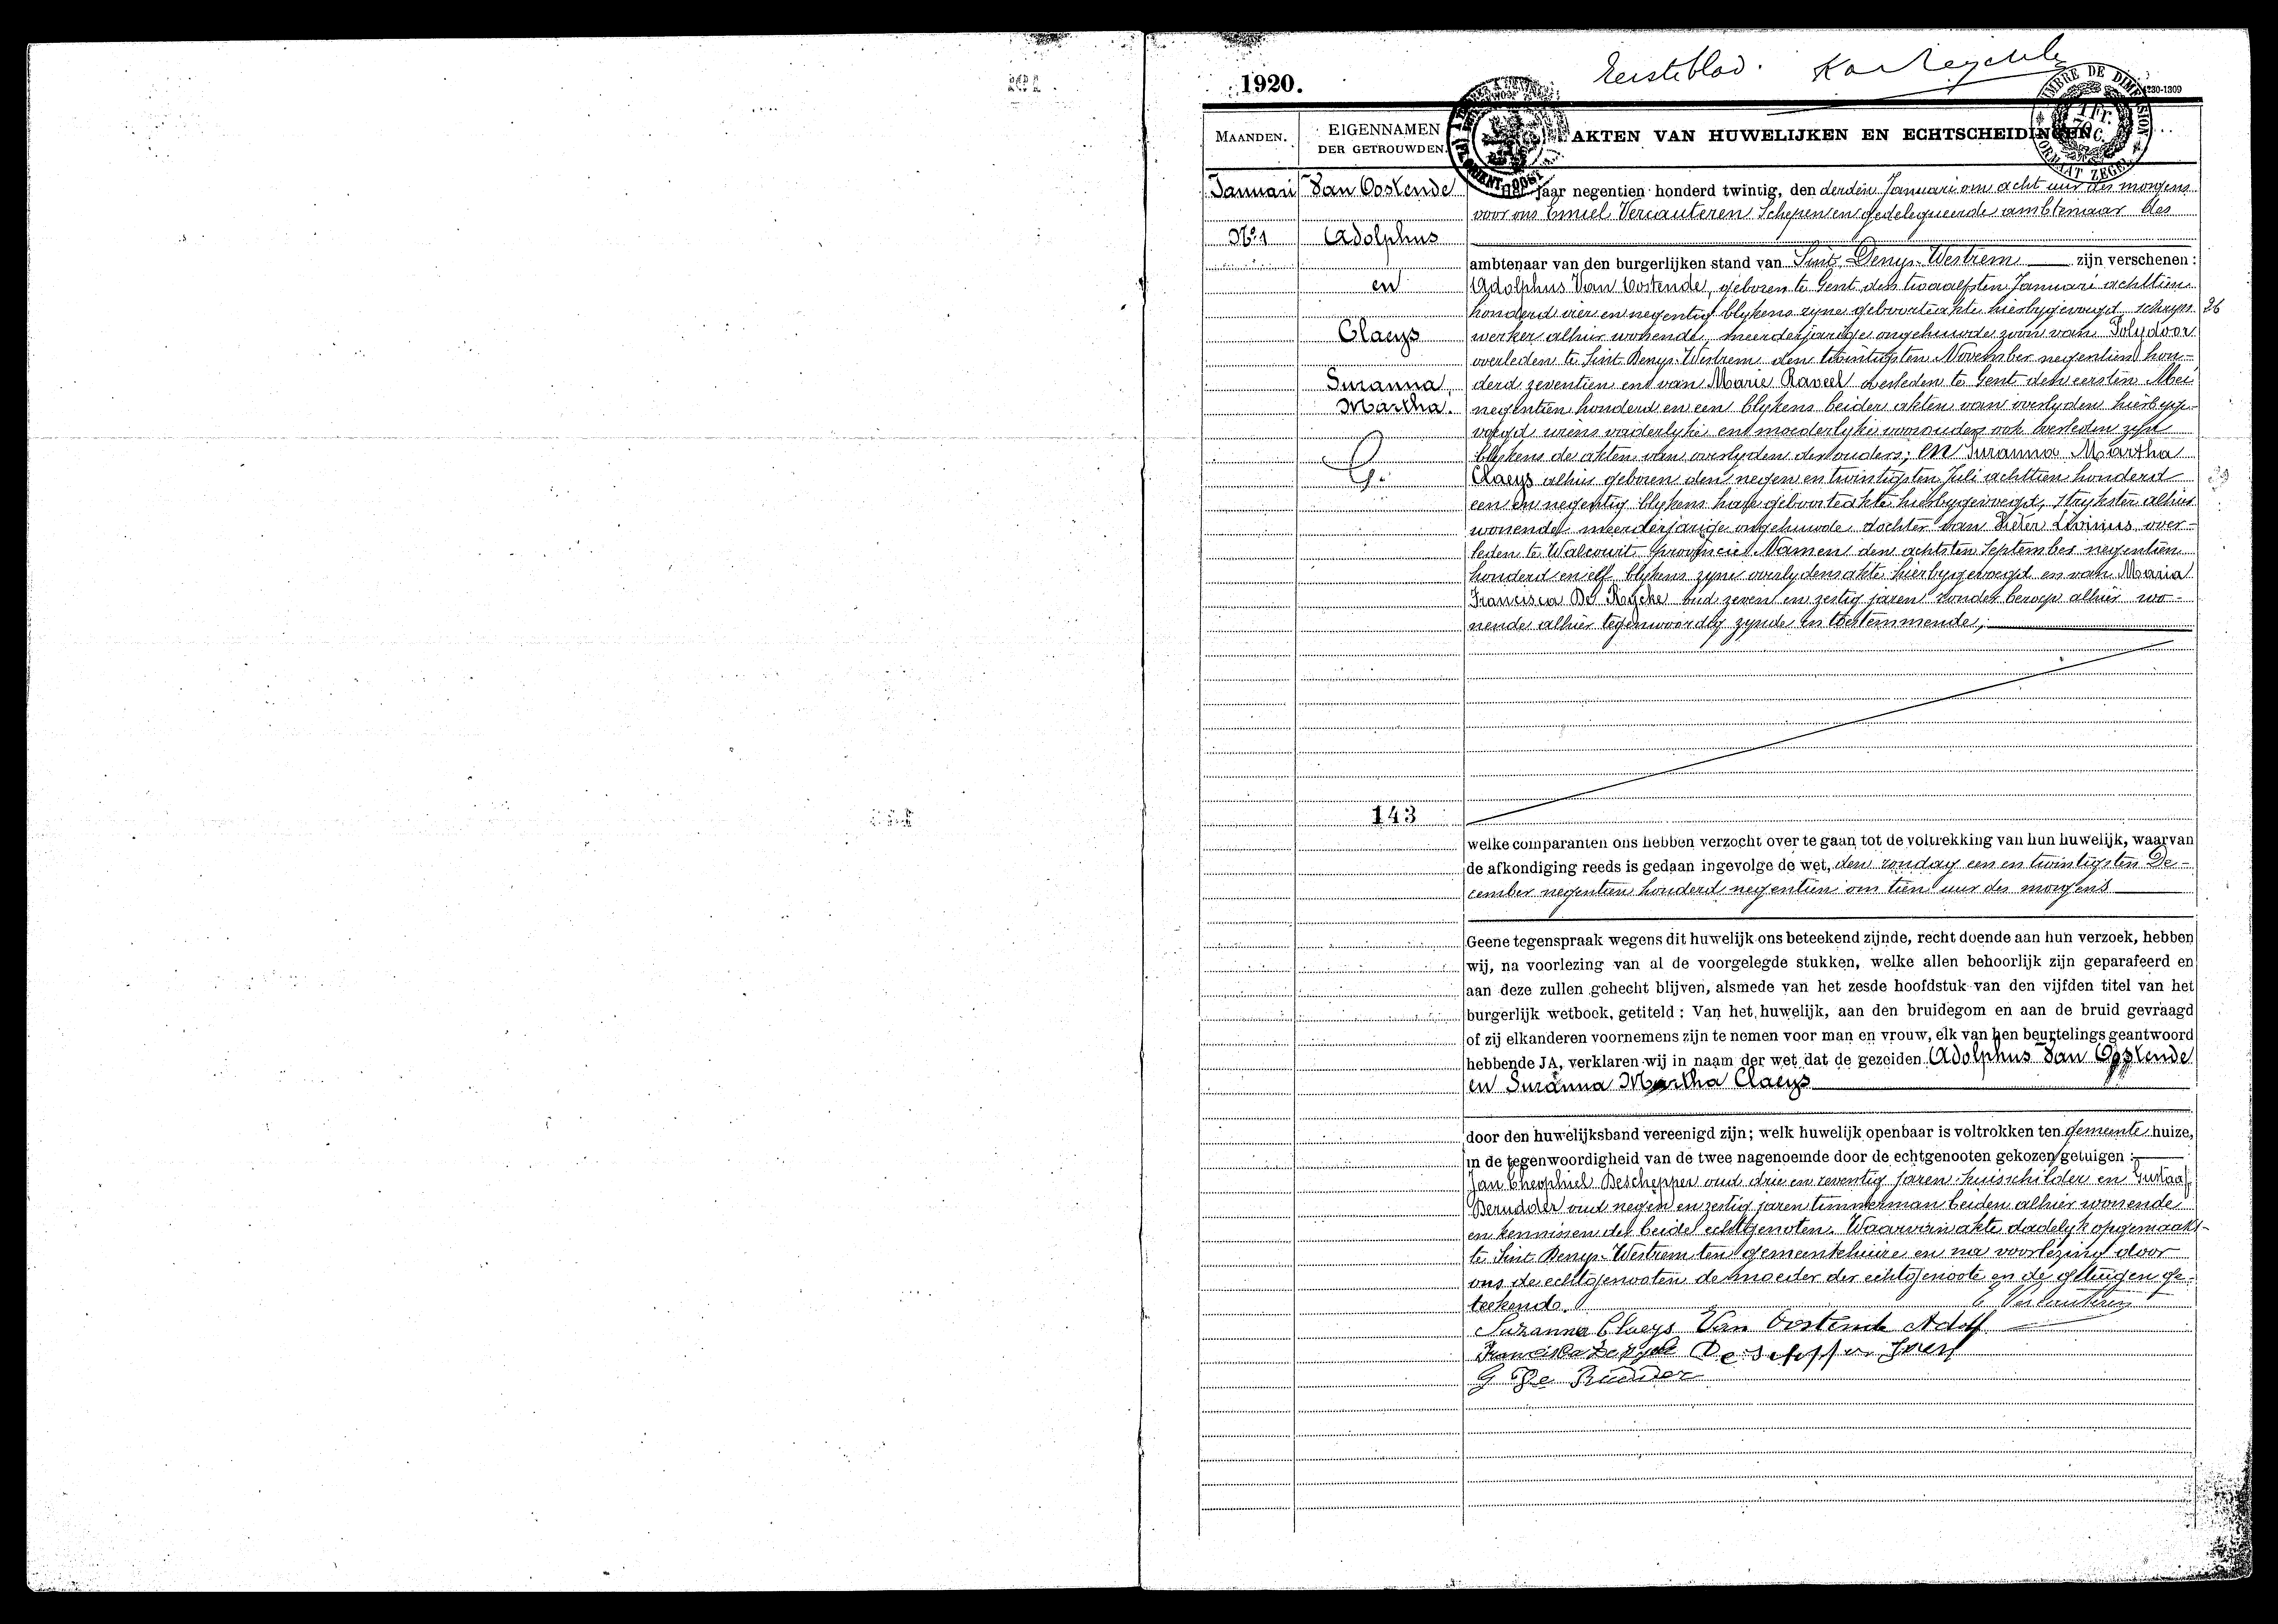 1920.
Eersteblad.
1230-1309
TIMBRE DE DIMENSION
1 Fr. 70 C.
FORMAAT ZEGEL
MAANDEN.
EIGENNAMEN DER GETROUWDEN.
AKTEN VAN HUWELIJKEN EN ECHTSCHEIDINGEN
Januari
No 1
Van Oostende
Adolphus
en
Claeys
Suzanna
Martha.
143
Het jaar negentien honderd twintig, den derden Januari om acht uur des morgens
voor ons Emiel Vercauteren Schepen en gedelegueerde ambtenaar des
ambtenaar van den burgerlijken stand van Sint Denys-Westrem zijn verschenen:
Adolphus Van Oostende, geboren te Gent den twaalfsten Januari achttien
honderd vier en negentig blykens zyne geboorteakte hierbygevoegd schryn 26
werker alhier wonende, meerderjarige ongehuwde zoon van Polydoor
overleden te Sint Denys-Westrem den twintigsten November negentien hon-
derd zeventien en van Marie Raveel overleden te Gent den eersten Mei
negentien honderd en een blykens beider akten van overlyden hierbyge-
voegd wiens vaderlyke en moederlyke voorouders ook overleden zyn
blykens de akten van overlyden der ouders; en Suzanna Martha
Claeys alhier geboren den negen en twintigsten Juli achttien honderd
een en negentig blykens hare geboorteakte hierbygevoegd, strykster alhier
wonende meerderjarige ongehuwde dochter van Pieter Livinus over-
leden te Walcourt provincie Namen den achtsten September negentien
honderd en elf blykens zyne overlydensakte hierbygevoegd en van Maria
Francisca De Rycke oud zeven en zestig jaren zonder beroep alhier wo-
nende alhier tegenwoordig zynde en toestemmende;
welke comparanten ons hebben verzocht over te gaan tot de voltrekking van hun huwelijk, waarvan
de afkondiging reeds is gedaan ingevolge de wet, den zondag een en twintigsten De-
cember negentien honderd negentien om tien uur des morgens
Geene tegenspraak wegens dit huwelijk ons beteekend zijnde, recht doende aan hun verzoek, hebben
wij, na voorlezing van al de voorgelegde stukken, welke allen behoorlijk zijn geparafeerd en
aan deze zullen gehecht blijven, alsmede van het zesde hoofdstuk van den vijfden titel van het
burgerlijk wetboek, getiteld : Van het huwelijk, aan den bruidegom en aan de bruid gevraagd
of zij elkanderen voornemens zijn te nemen voor man en vrouw, elk van hen beurtelings geantwoord
hebbende JA, verklaren wij in naam der wet dat de gezeiden Adolphus Van Oostende
en Suzanna Martha Claeys
door den huwelijksband vereenigd zijn; welk huwelijk openbaar is voltrokken ten gemeente huize,
in de tegenwoordigheid van de twee nagenoemde door de echtgenooten gekozen getuigen :
Jan Theophiel Deschepper oud drie en zeventig jaren huisschilder en Gustaaf
Derudder oud negen en zestig jaren timmerman beiden alhier wonende
en kennissen der beide echtgenoten. Waarvan akte dadelyk opgemaakt
te Sint Denys-Westrem ten gemeentehuize en na voorlezing door
ons de echtgenooten de moeder der echtgenoote en de getuigen ge-
teekend.
E Vercauteren
Suzanna Claeys Van Oostende Adolf
Francisca De Rycke De Schepper
G De Rudder